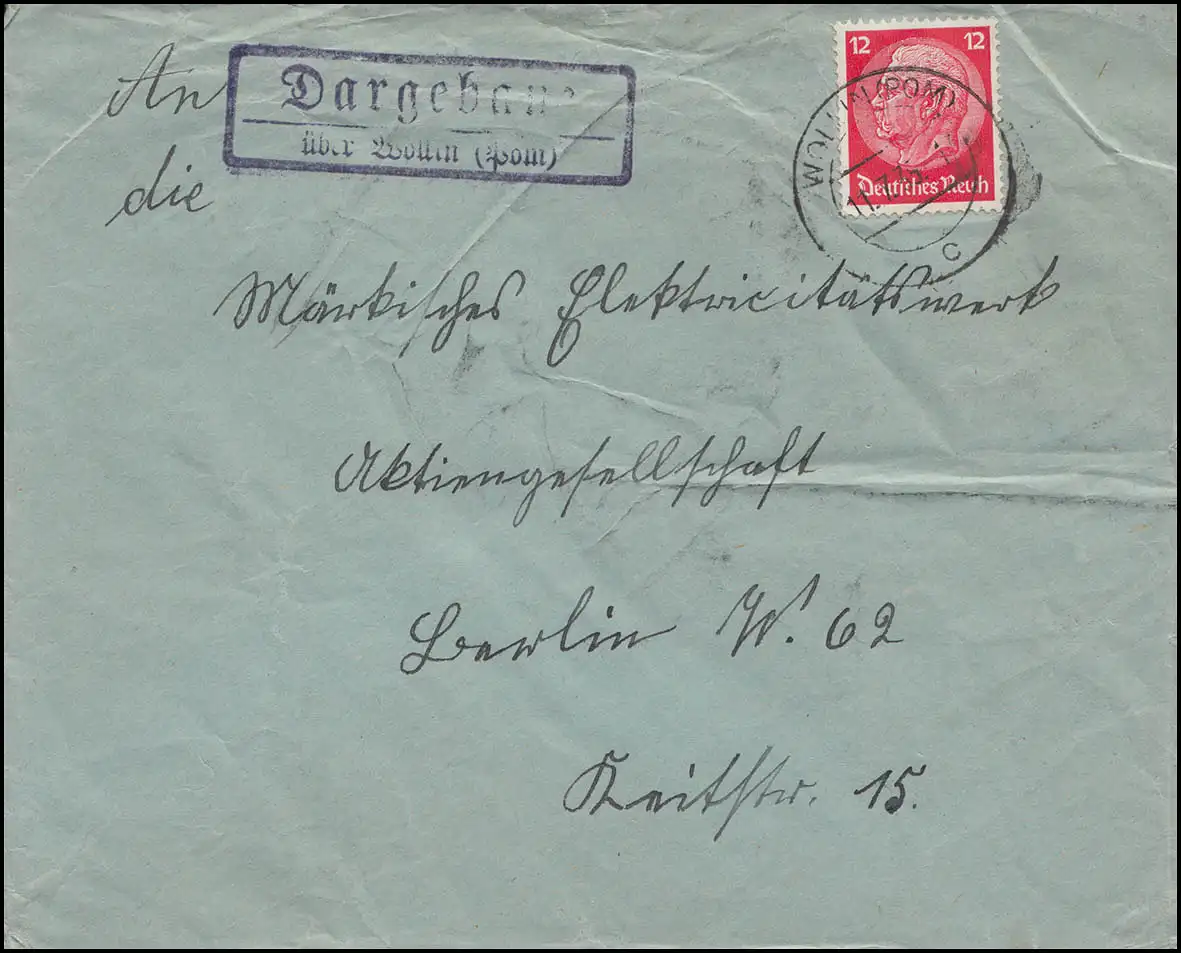 An
Dargebanz
über Wollin (Pom)
12 12
WOLLIN (POM)
Deutsches Reich
c
die
Märkisches Elektricitätswerk
Aktiengesellschaft
Berlin W. 62
Keithstr. 15.